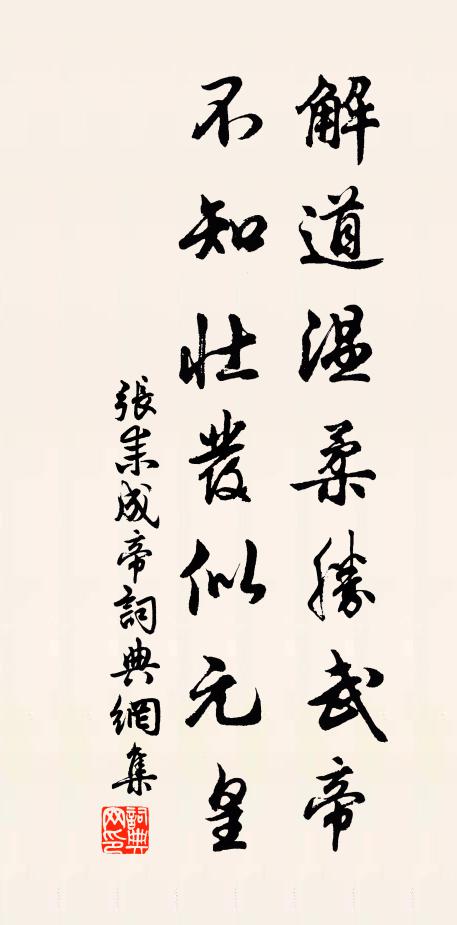 解道温柔勝武帝
不知壯發似元皇
張耒成帝詞典網集
詞典網印